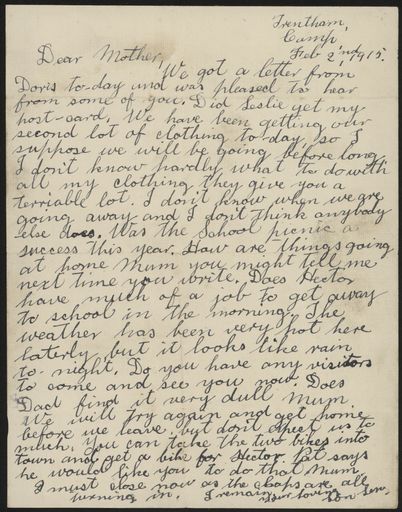 Trentham,
Camp,
Feb 2nd, 1915.
Dear Mother,
We got a letter from
Doris to-day and was pleased to hear
from some of you. Did Leslie get my
post-card. We have been getting our
second lot of clothing to-day, so I
suppose we will be going before long,
I don't know hardly what to do with
all my clothing they give you a
terriable lot. I don't know when we are
going away and I don't think anybody
else does. Was the School picnic a
success this year. How are things going
at home Mum you might tell me
next time you write. Does Hector
have much of a job to get away
to school in the morning. The
weather has been very hot here
laterly, but it looks like rain
to-night. Do you have any visitors
to come and see you now. Does
Dad find it very dull Mum
We will try again and get home
before we leave, but don't expect us to
much. You can take the two bikes into
town and get a bike for Hector. Pat says
he would like you to do that Mum.
I must close now as the chaps are all
turning in. I remain
Your loving Son